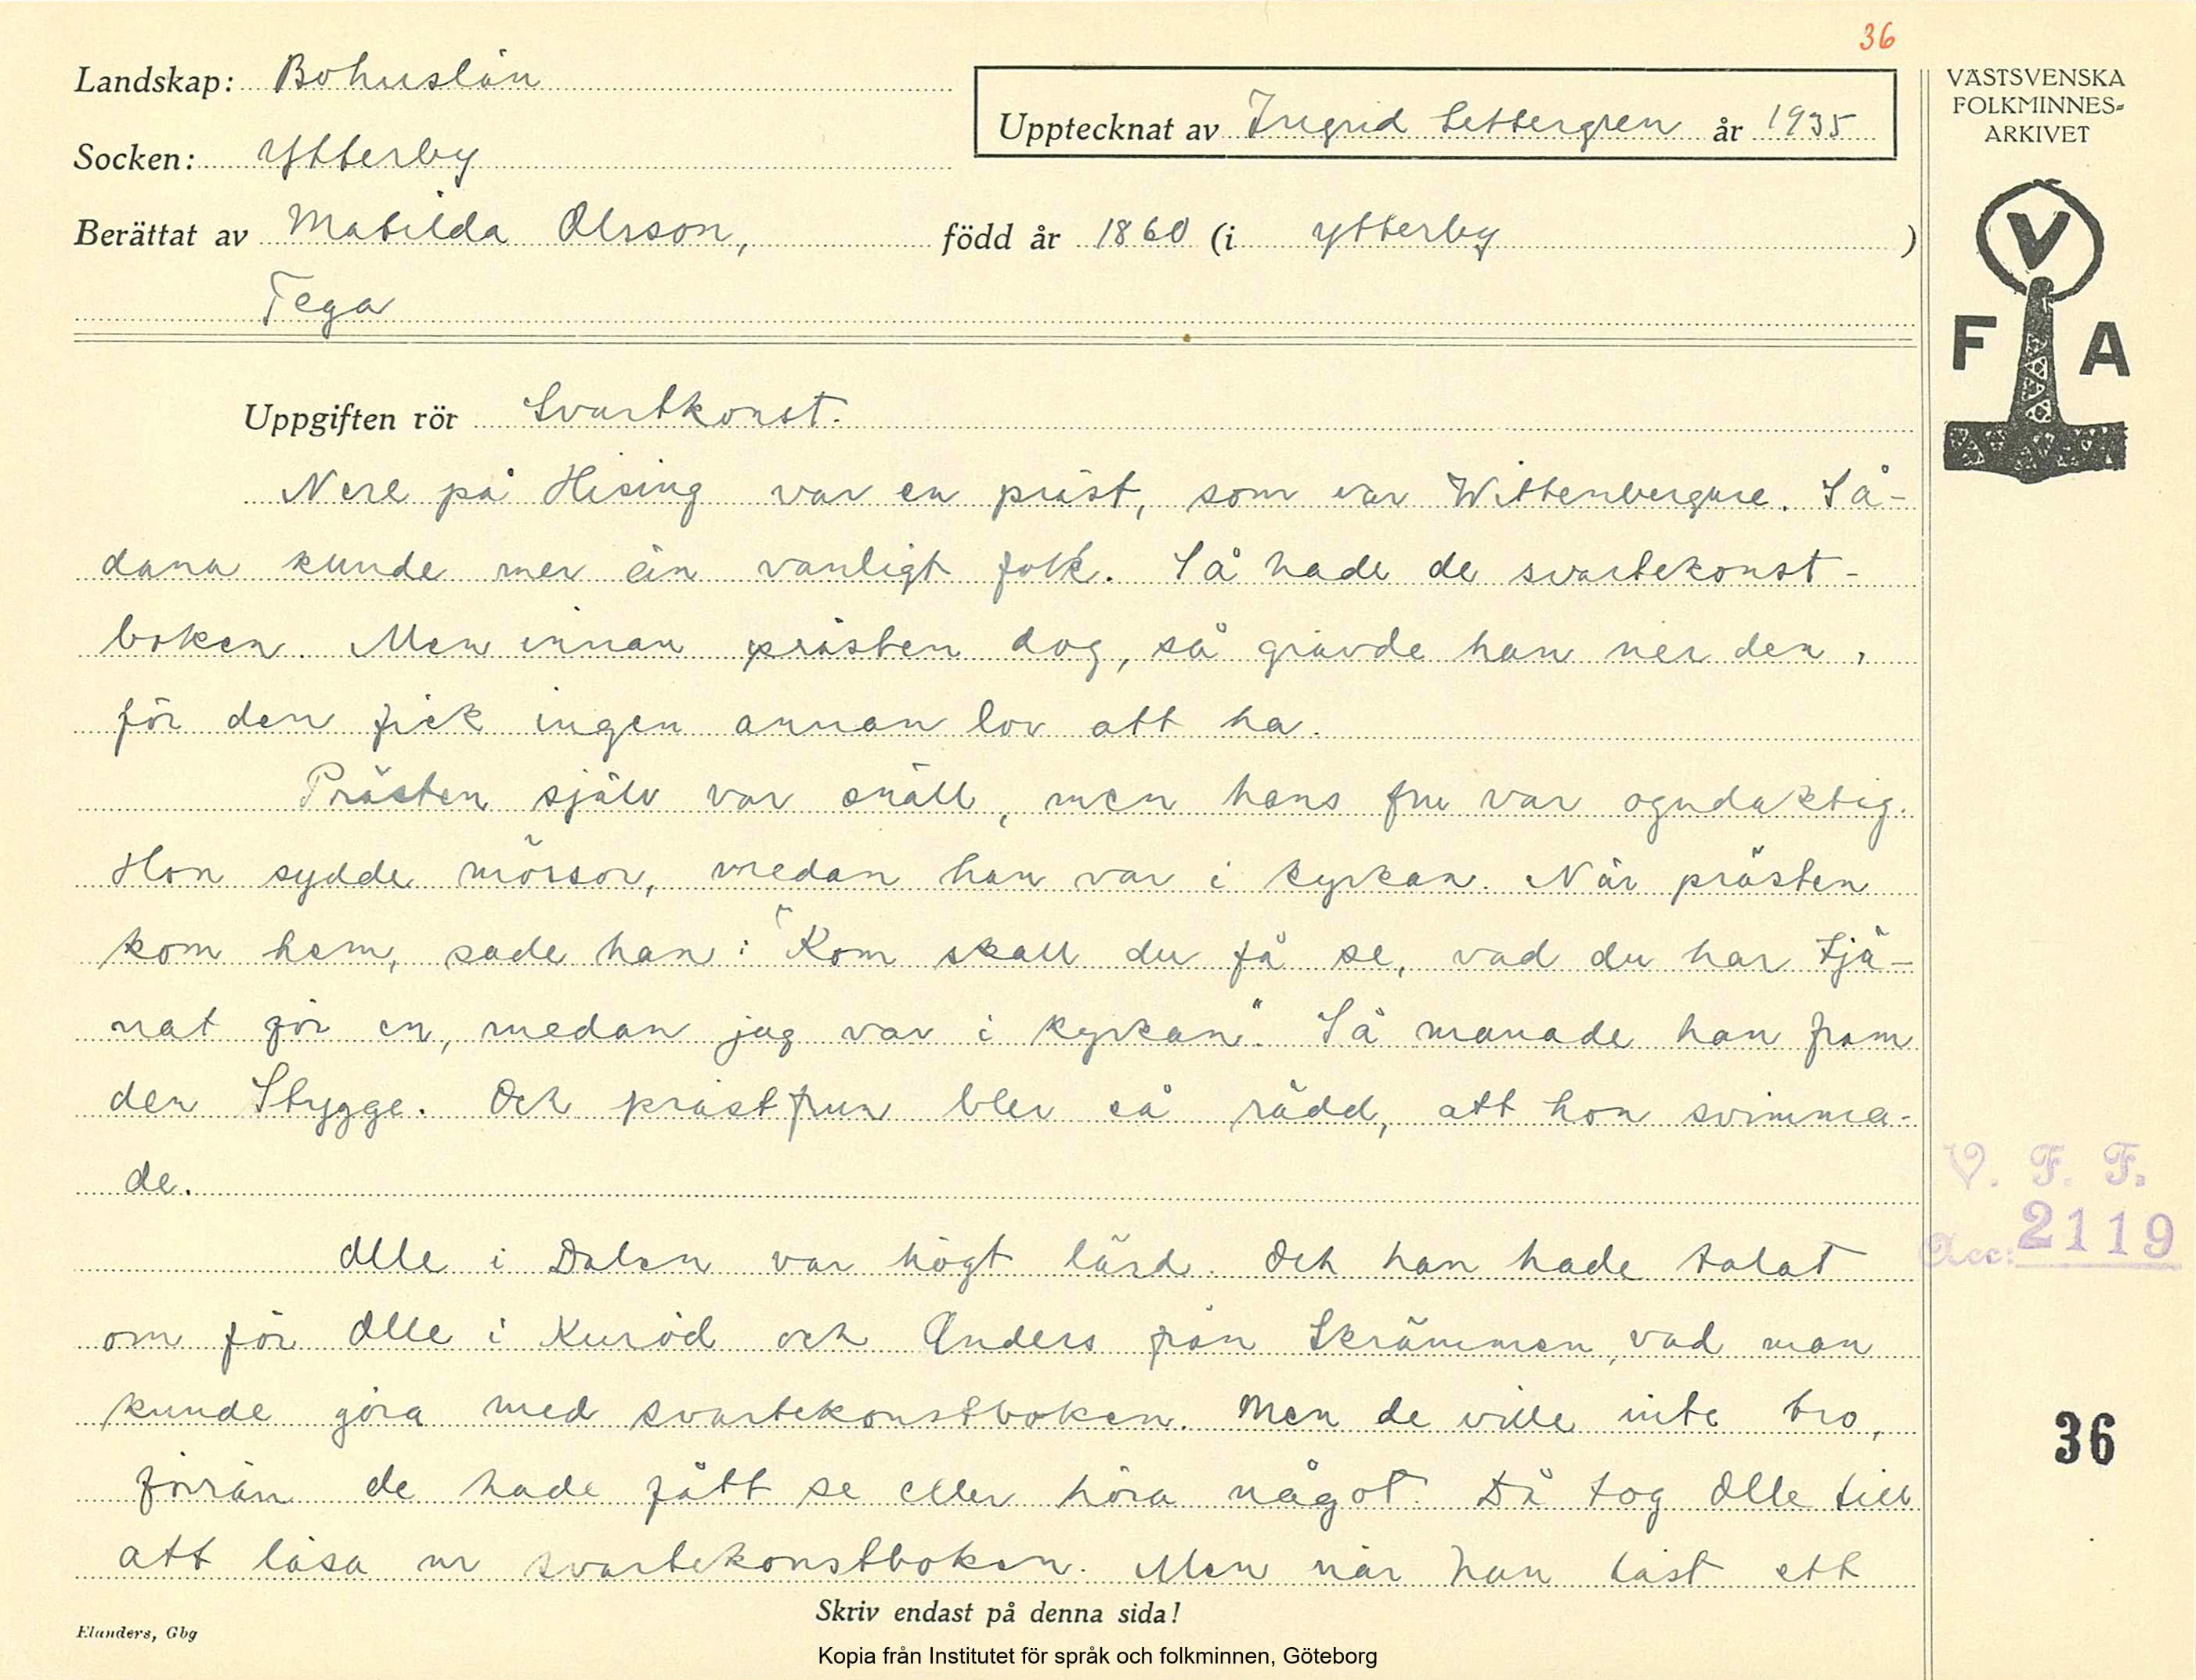 36
Landskap: Bohuslän
Upptecknat av Ingrid Settergren år 1935
Socken: Ytterby
Berättat av Matilda Olsson, född år 1860 (i Ytterby )
Tega
VÄSTSVENSKA
FOLKMINNES=
ARKIVET
V
F A
Uppgiften rör Svartkonst.
Nere på Hising var en präst, som var Wittenbergare. Så-
dana kunde mer än vanligt folk. Så hade de svartekonst-
boken. Men innan prästen dog, så grävde han ner den,
för den fick ingen annan lov att ha.
Prästen själv var snäll, men hans fru var ogudaktig.
Hon sydde mössor, medan han var i kyrkan. När prästen
kom hem, sade han: "Kom skall du få se, vad du har tjä-
nat för en, medan jag var i kyrkan". Så manade han fram
den Stygge. Och prästfrun blev så rädd, att hon svimma-
de.
Olle i Dalen var högt lärd. Och han hade talat
om för Olle i Kuröd och Anders från Skrämmen, vad man
kunde göra med svartekonstboken. Men de ville inte tro,
förrän de hade fått se eller höra något. Då tog Olle till
att läsa ur svartekonstboken. Men när han läst ett
V. F. F.
Acc: 2119
36
Skriv endast på denna sida!
Elanders, Gbg
Kopia från Institutet för språk och folkminnen, Göteborg